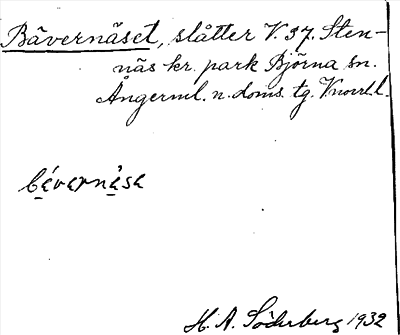 Bävernäset, slåtter V. 37. Sten-
näs kr. park Björna sn.
Ångerml. n. doms. tg. Vnorrl. l.
bé̠vɐrnɐ̠̀sɐ
H. A. Söderberg 1932